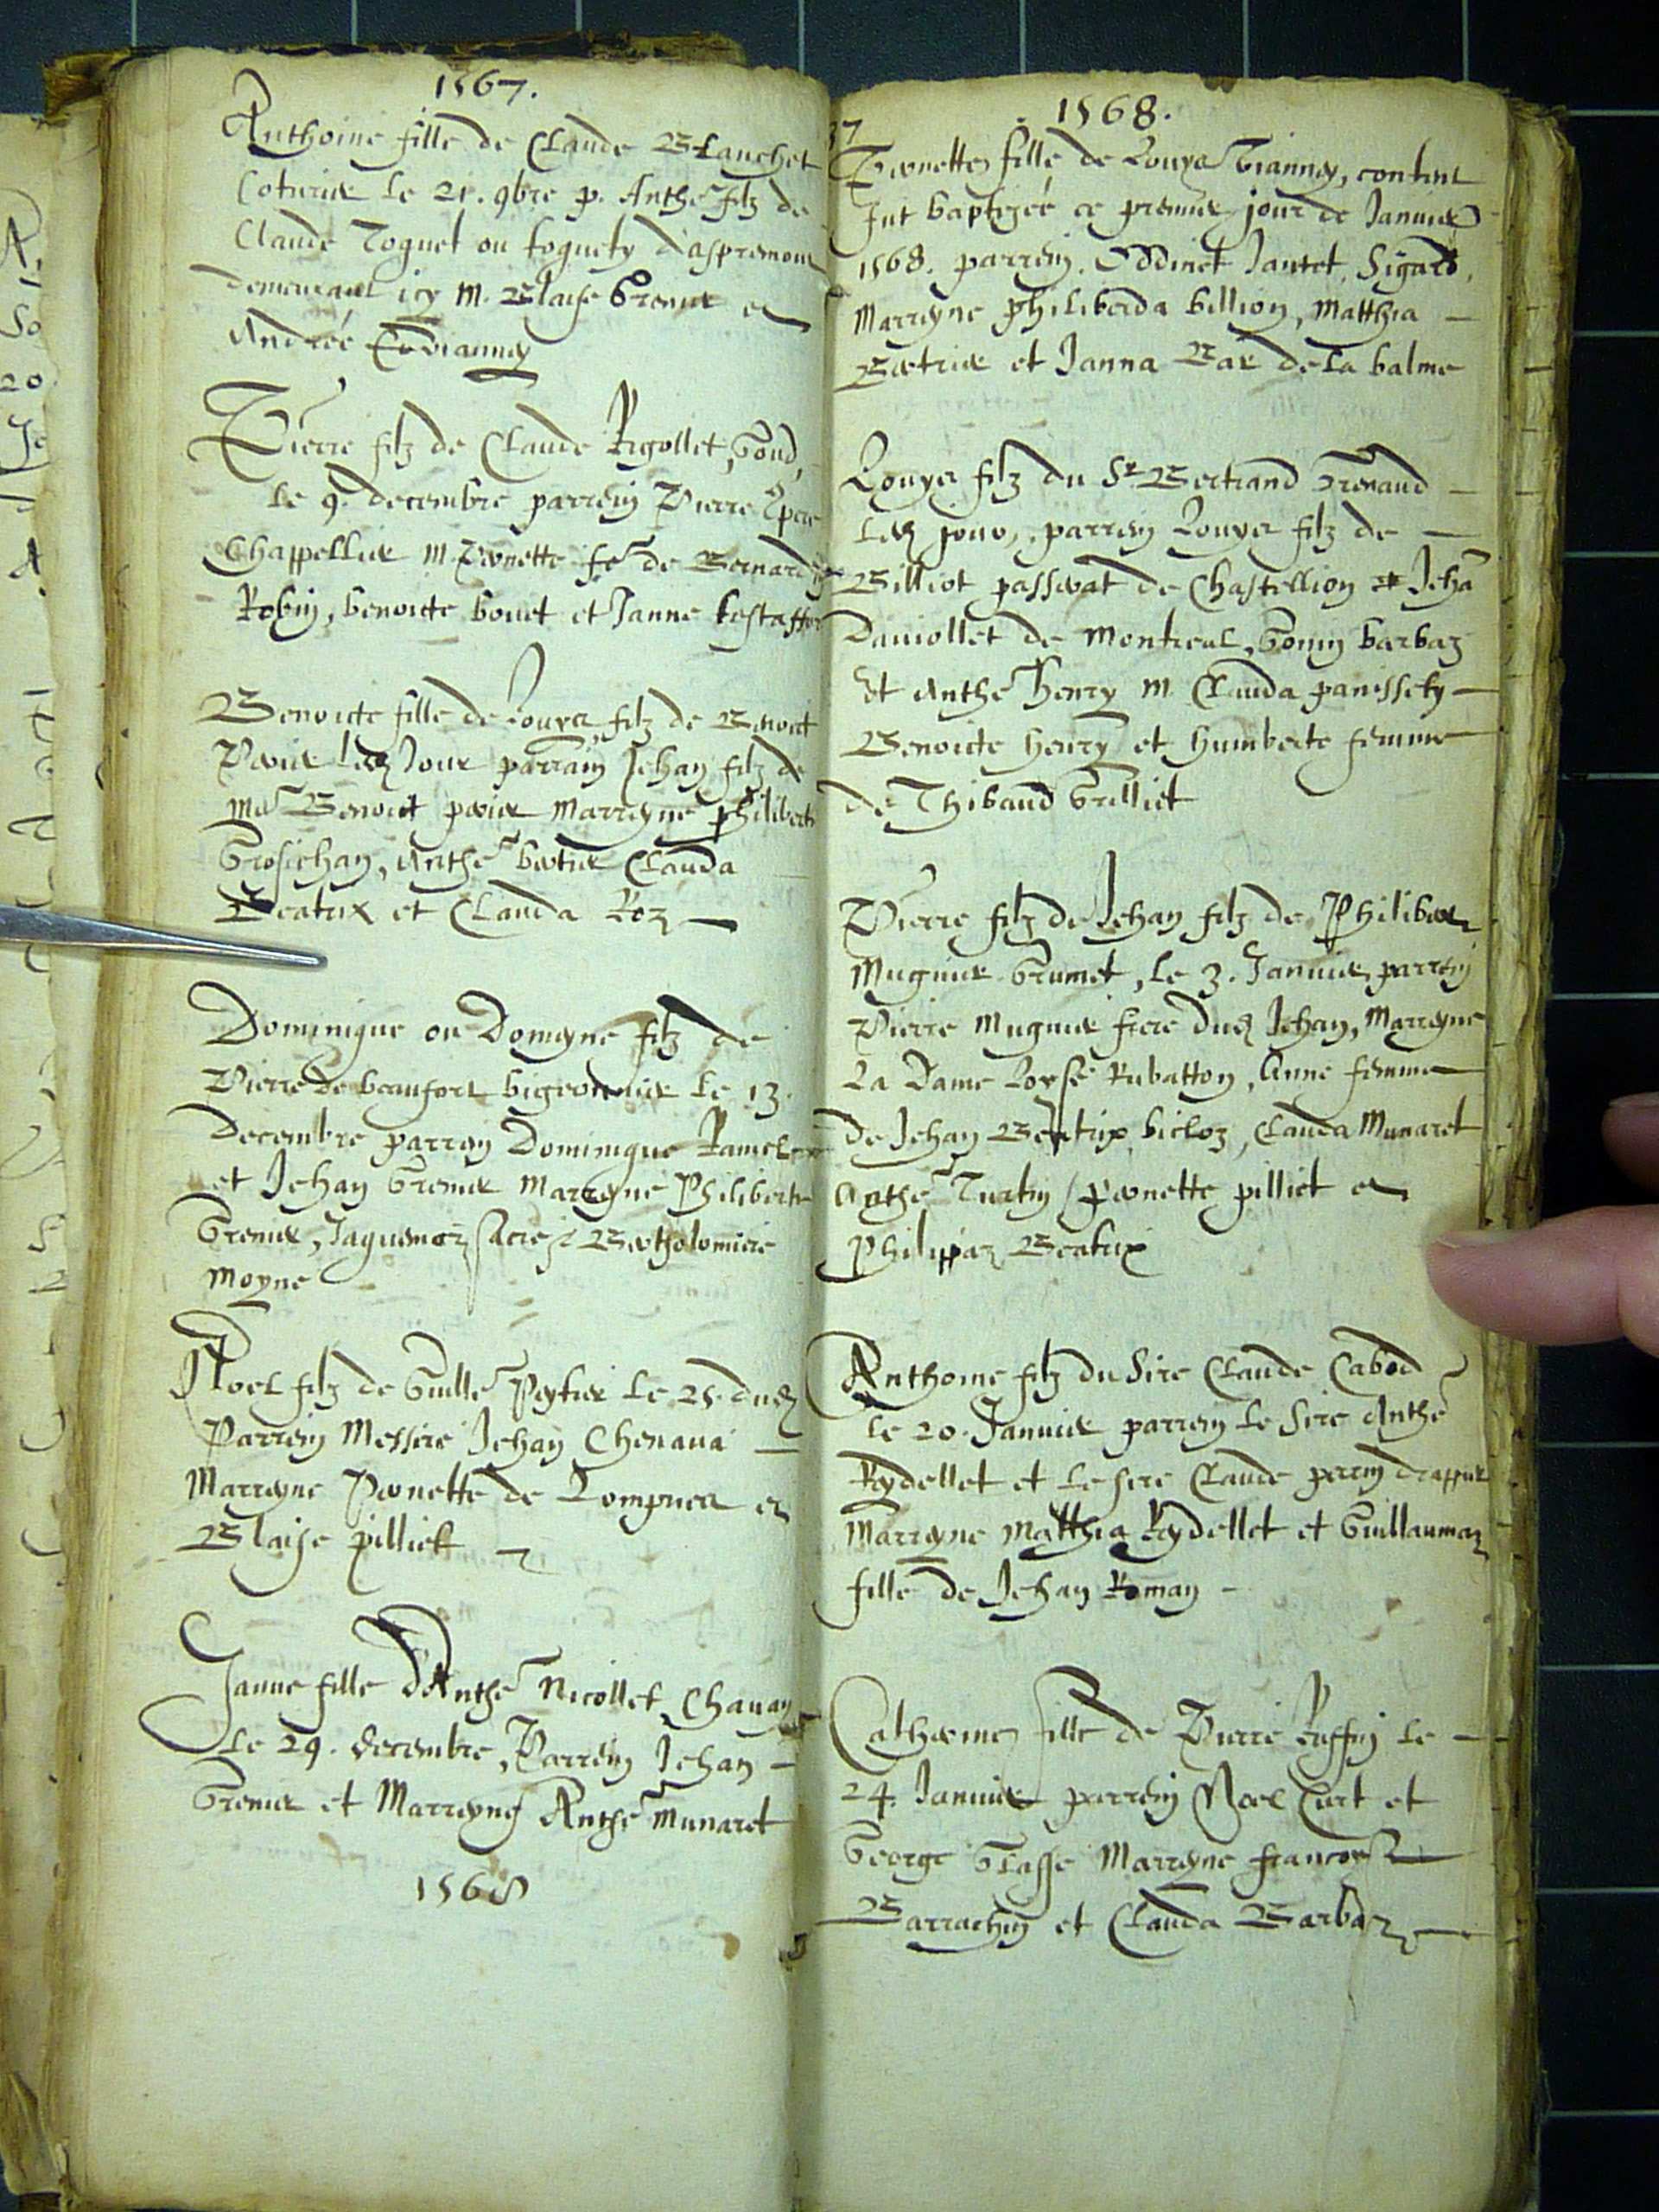 1567.
Anthoine fille de Claude Blanchet
Coturier le 21. 9bre p. Anthe filz de
Claude Toguet ou toguety d'aspremont
demeurant icy M. Blaise Grenier et
Andrée
Pierre filz de Claude Rigollet, Goud,
le 9. decembre parrein Pierre
Chappellier M. Pernette fe de Bernard
Robin, benoicte bouet et Janne
Benoicte fille de Louys filz de Benoit
Perier led Jour parrain Jehan filz de
Me Benoit perier Marreyne Philiberte
Grosjehan, Anthe betrix Clauda
Beatrix et Clauda Roz
Dominique ou Domeyne filz de
Pierre de beaufort le 13.
Decembre parrein Dominique Ramel
et Jehan Grenier Marreyne Philiberte
Grenier, Jaquemoz Bertholomiere
Moyne
Noel filz de Guille Peytier le 25. dud
Parrein Messire Jehan Chenava
Marreyne Pernette de Lompnes et
Blaise pilliet
Janne fille D'Anthe Nicollet Chavan
Le 29. decembre, Parrein Jehan
Grenier et Marreyne Anthe Munaret
1568
37
1568.
Pernette fille de Louys Vianney,
fut baptizée ce premier jour de Janvier
1568. parrein. Oddinet Jantet, Sigard,
Marreyne Philiberda billion, Matthia
Betrix et Janna Bar de la balme
Louys filz du Sr Bertrand Trenaud
led jour, parrein Louys filz de
Billiot passerat de Chastellion Jeha
Daniollet de Montreal, Gonin barbaz
Et Anthe Henry M. Clauda panissety
Benoicte henry et humberte femme
de Thibaud Grilliet
Pierre filz de Jehan filz de Philiber
Mugnier Grumet, le 3. Janvier parrein
Pierre Mugnier frere dud Jehan, Marreyne
La Dame Loyse Rubatton, Anne femme
de Jehan Beatrix bicloz, Clauda Munaret
Anthe Turtin, Pernette pilliet et
Philippaz Beatrix
Anthoine filz du Sire Claude Cabod
le 20. Janvier parrein le Sire Anthe
Reydellet et le sire Claude perrin drappier
Marreyne Matthia Reydellet et Guillaumaz
fille de Jehan Roman
Catherine fille de Pierre Ruffin le
24. Janvier parrein Noel Curt et
George Glasse Marreyne francoise
Barrachin et Clauda Barbaz